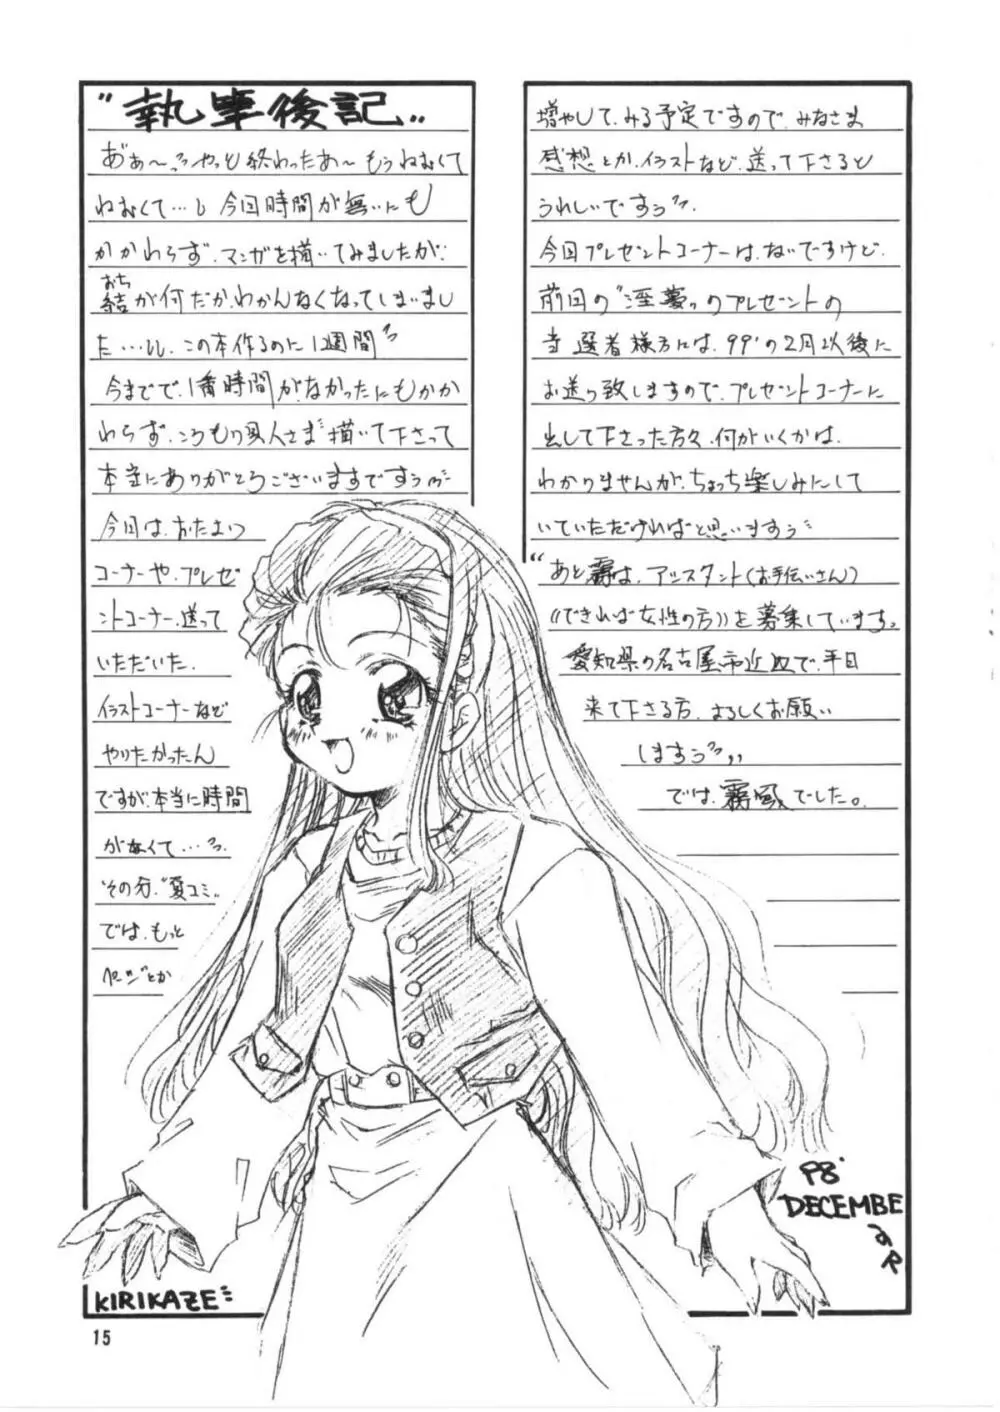 ”執筆後記„
あぁ〜〜っやっと終わったあ〜もうねむくて
ねむくて…し今回時間が無いにも
かかわらず、マンガを描いてみましたが、
おち
結が何だか、わかんなくなってしまいまし
た…、この本作るのに1週間
今までで、1番時間がなかったにもかか
わらず、ころもり员人さま描いて下さって
本当にありがとうございますですうぅ
今回は、おたよりコーナーや、プレゼ
ントコーナー、送って
いただいた、
イラストコーナーなど
やりたかったん
ですが、本当に時間
がなくて…っ
その分、“夏コミ„
では、もっと
ページとか
増やして、みる予定ですので、みなさま
感想とか、イラストなど、送って下さると
うれしいですぅ
今回プレゼントコーナーは、ないですけど、
前回の“淫夢„のプレゼントの
当選者様方には、99'の2月以後に
お送り致しますので、プレゼントコーナーに
出して下さった方々、何がいくかは、
わかりませんが、ちょっち楽しみにして
いていただければと思いますぅ
“あと霧は、アシスタント(お手伝いさん)
《できれば女性の方》を募集しています。
愛知県の名古屋市近辺で、平日
来て下さる方、よろしくお願い
しますぅ„
では、霧風でした。
98'
DECEMBER
KIRIKAZE
15